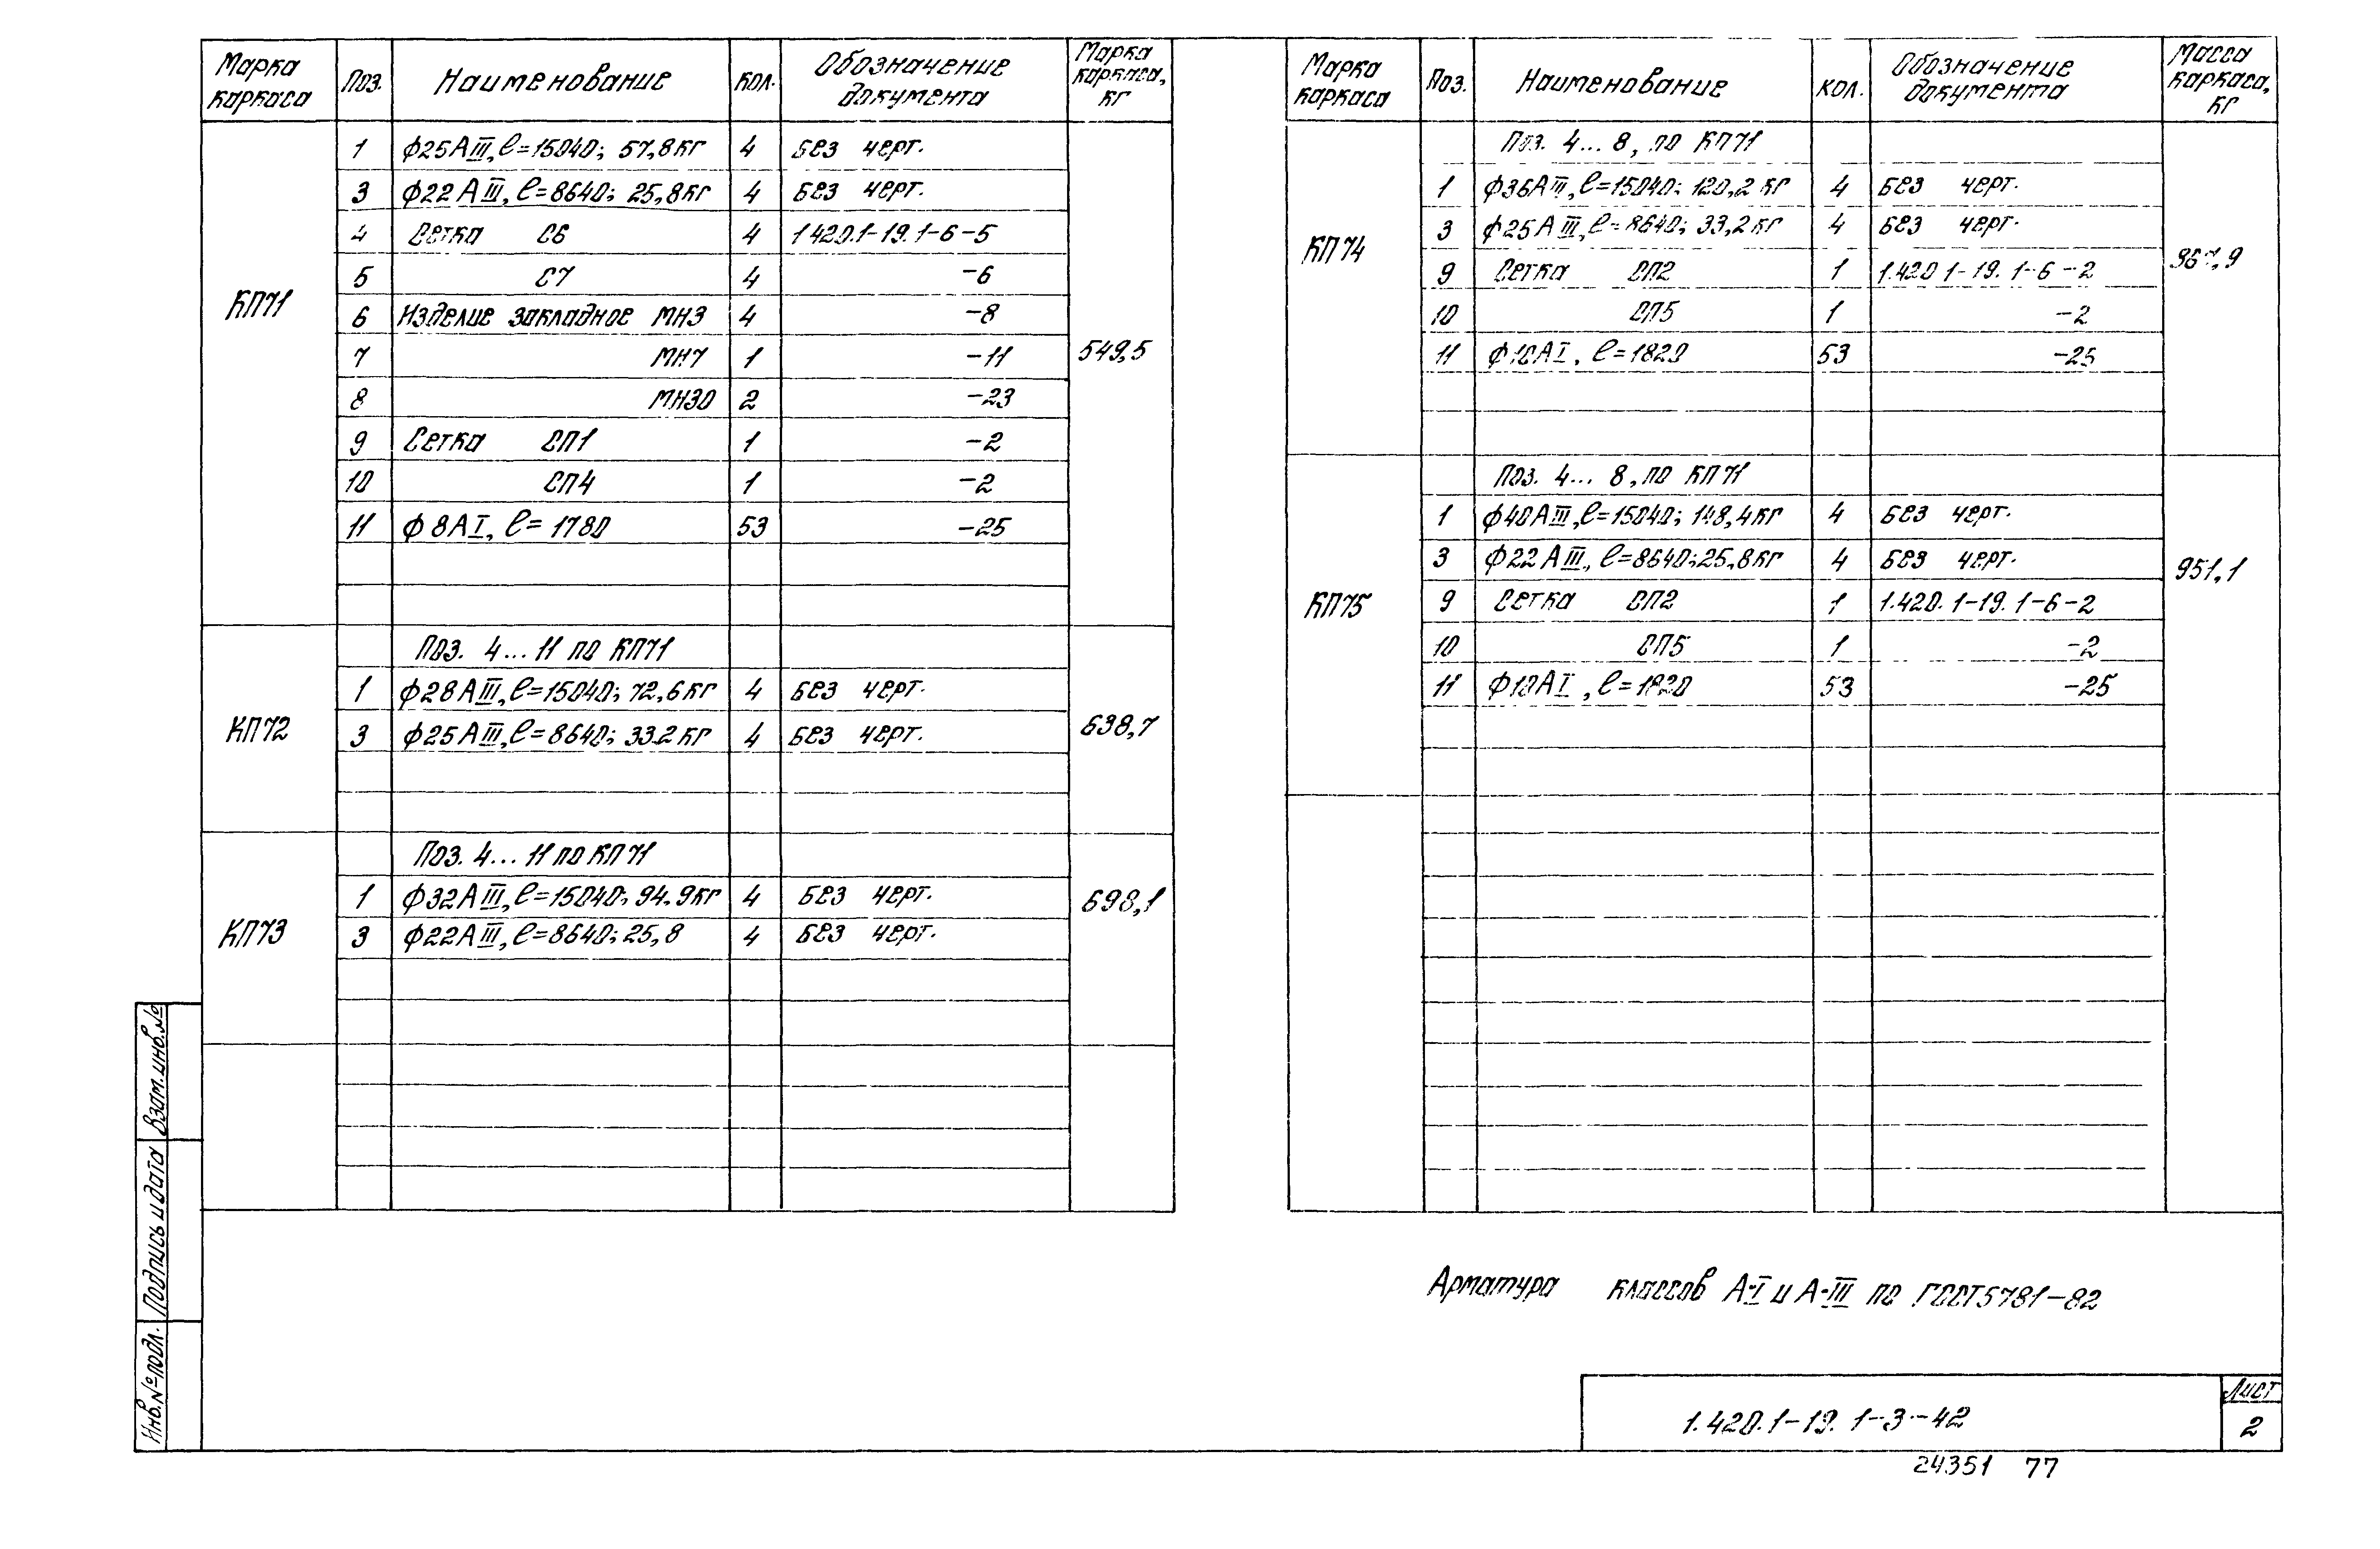 Марка каркаса | Поз. | Наименование | Кол. | Обозначение документа | Марка каркаса, кг
КП71
1 | ф25АIII, ℓ=15040; 57,8кг | 4 | Без черт.
3 | ф22АIII, ℓ=8640; 25,8кг | 4 | Без черт.
4 | Сетка С6 | 4 | 1420.1-19.1-6-5
5 | С7 | 4 | -6
6 | Изделие закладное МН3 | 4 | -8
7 | МН7 | 1 | -11 | 549,5
8 | МН30 | 2 | -23
9 | Сетка СП1 | 1 | -2
10 | СП4 | 1 | -2
11 | ф8АI, ℓ=1780 | 53 | -25
КП72
Поз. 4...11 по КП71
1 | ф28АIII, ℓ=15040; 72,6кг | 4 | Без черт.
3 | ф25АIII, ℓ=8640; 33.2кг | 4 | Без черт. | 638,7
КП73
Поз. 4...11 по КП71
1 | ф32АIII, ℓ=15040; 94.9кг | 4 | Без черт. | 698,1
3 | ф22АIII, ℓ=8640; 25,8 | 4 | Без черт.
Марка каркаса | Поз. | Наименование | Кол. | Обозначение документа | Масса каркаса, кг
КП74
Поз. 4...8, по КП71
1 | ф36АIII, ℓ=15040; 120,2кг | 4 | Без черт.
3 | ф25АIII, ℓ=8640; 33,2кг | 4 | Без черт.
9 | Сетка СП2 | 1 | 1.420 1-19. 1-6-2
10 | СП5 | 1 | -2
11 | ф10АI, ℓ=1820 | 53 | -25
КП75
Поз. 4...8, по КП71
1 | ф40АIII, ℓ=15040; 148,4кг | 4 | Без черт.
3 | ф22АIII, ℓ=8640; 25,8кг | 4 | Без черт. | 951,1
9 | Сетка СП2 | 1 | 1.420.1-19.1-6-2
10 | СП5 | 1 | -2
11 | ф10АI, ℓ=1820 | 53 | -25
Арматура классов А-I и А-III по ГОСТ5781-82
Взам.инв.№
Подпись и дата
Инв.№подл.
1.420.1-19.1-3-42
Лист
2
24351 77